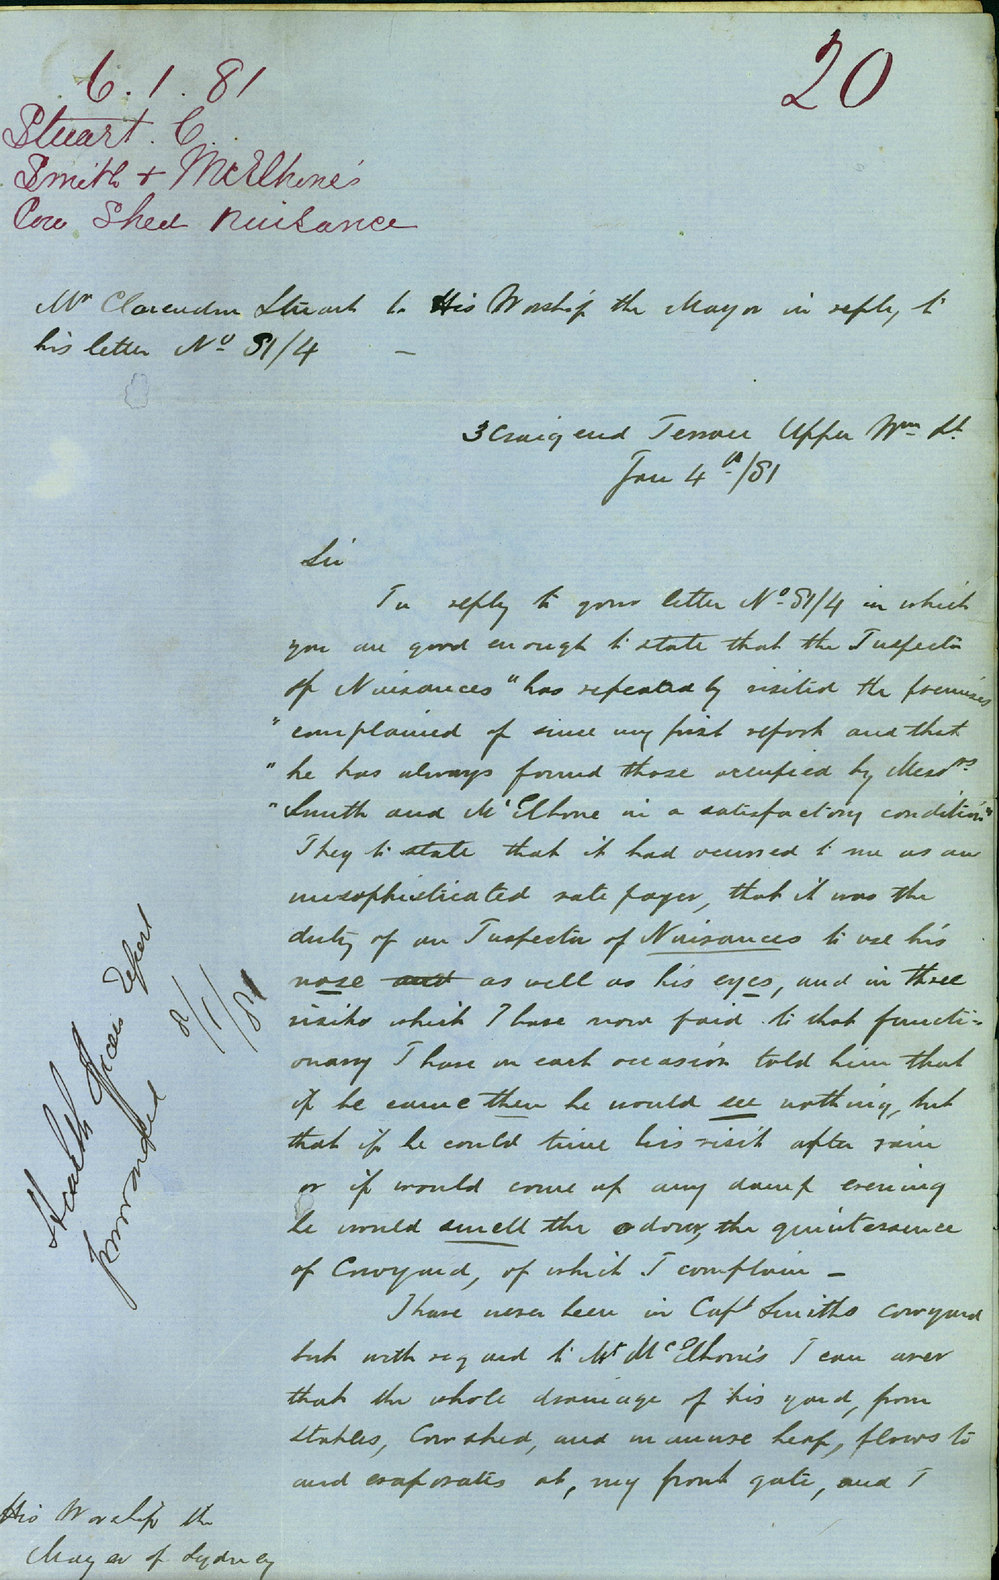 20
6.1.81
Stuart. C.
Smith + McElhone's
Cow Shed Nuisance
Mr Clarendon Stuart to His Worship the Mayor in reply to
his letter No 81/4 —
3 Craigend Terrace Upper Wm St.
Jan 4th/81
Sir
In reply to your letter No 81/4 in which
you are good enough to state that the Inspector
of Nuisances "has repeatedly visited the premises
"complained of since my first report and that
"he has always found those occupied by Messrs
"Smith and McElhone in a satisfactory condition"
I beg to state that it had occurred to me as an
unsophisticated rate payer, that it was the
duty of an Inspector of Nuisances to use his
nose and as well as his eyes, and in three
visits which I have now paid to that functi-
onary I have on each occasion told him that
if he came then he would see nothing, but
that if he could time his visit after rain
or if would come up any damp evening
he would smell the odour, the quintessence
of Cowyard, of which I complain —
I have never been in Capt Smiths cowyard
but with regard to Mr McElhone's I can aver
that the whole drainage of his yard, from
stables, Cowshed, and manure heap, flows to
and evaporates at, my front gate, and I
His Worship the
Mayor of Sydney
Health Officers Report
forwarded
8/1/81